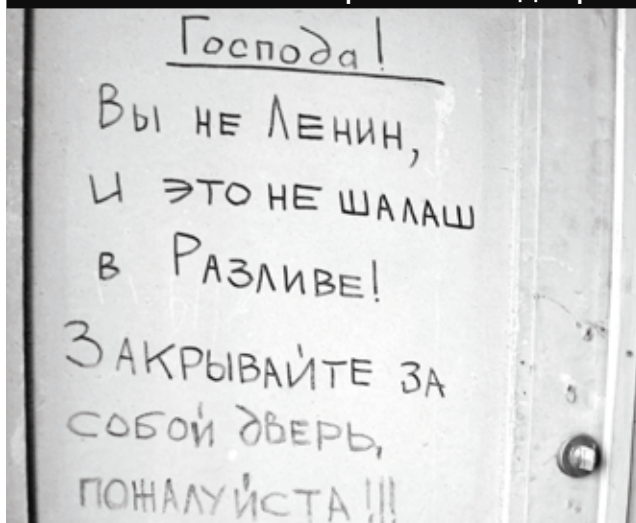 Господа!
Вы не Ленин,
и это не шалаш
в Разливе!
Закрывайте за
собой дверь,
пожалуйста!!!